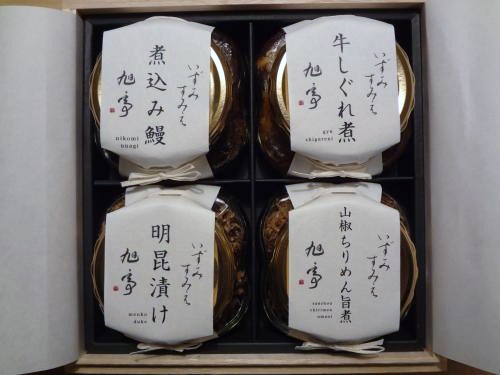 いずみ
すみえ
煮込み鰻
旭亭
nikomi
unagi
いずみ
すみえ
牛しぐれ煮
旭亭
gyu
shigureni
いずみ
すみえ
明昆漬け
旭亭
menko
duke
いずみ
すみえ
山椒ちりめん旨煮
旭亭
sanshou
chirimen
umani